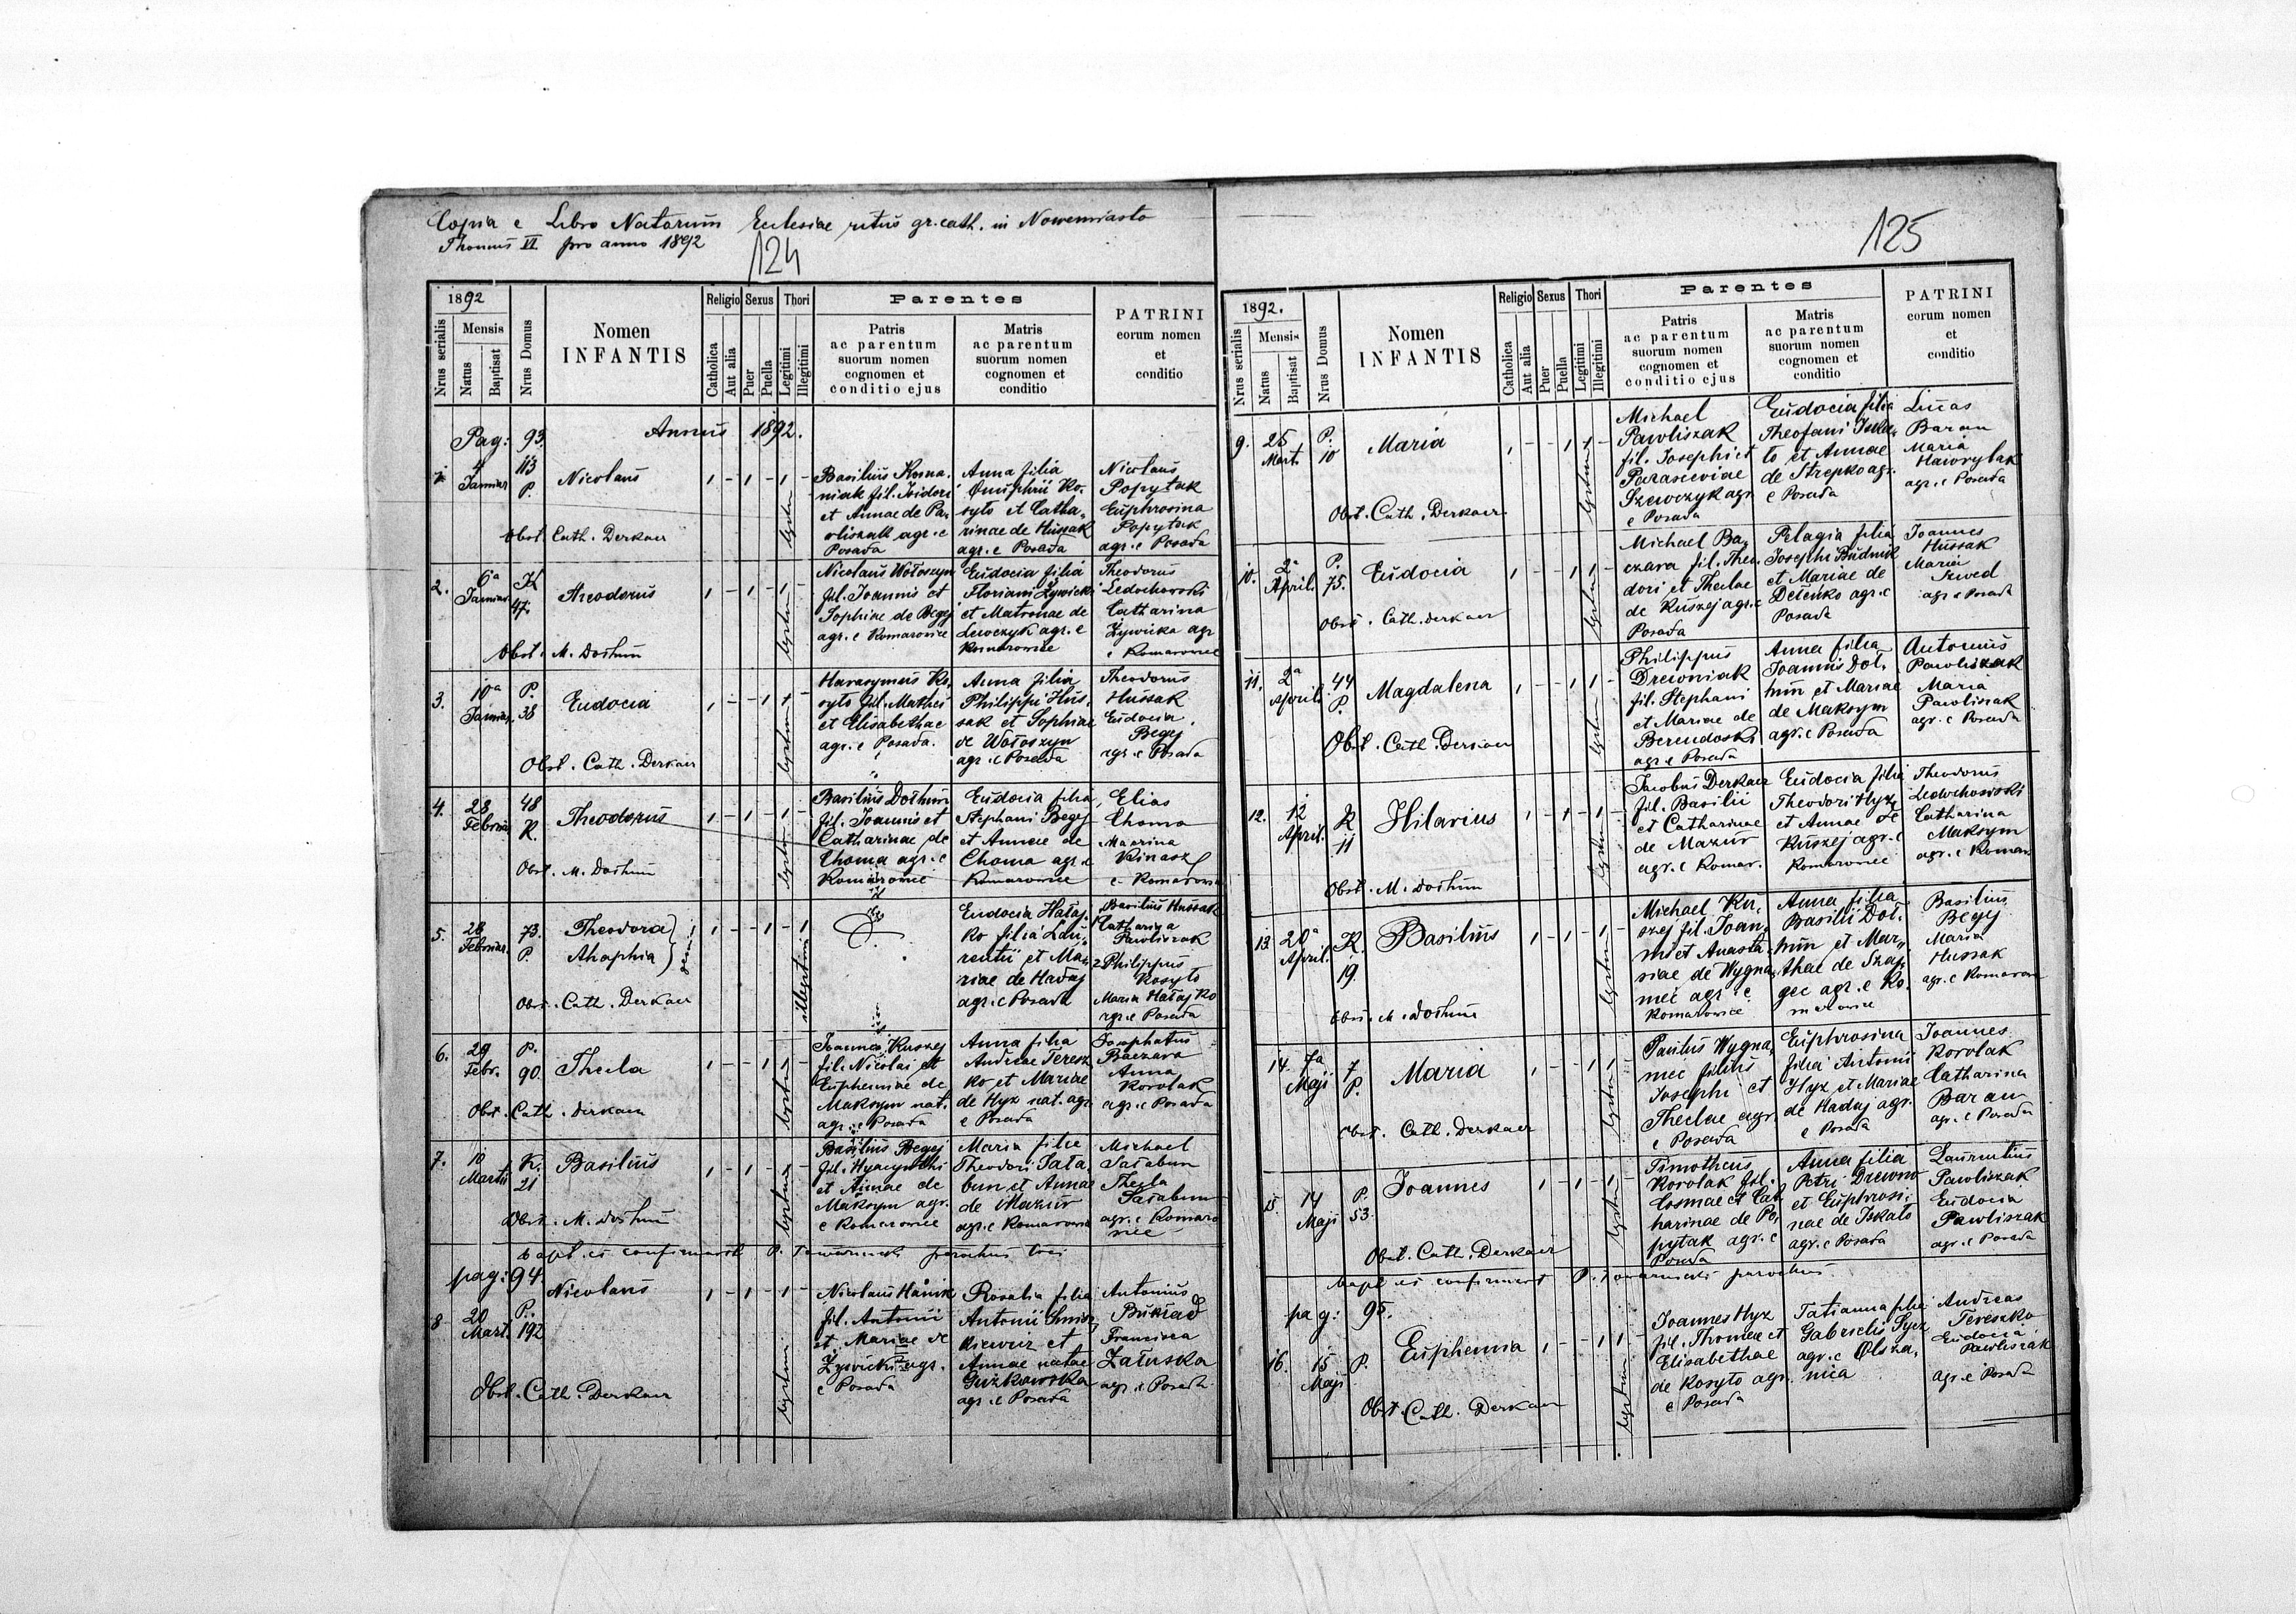 Copia e Libro Natorum Eclesiae ritus gr. cath. in Nowemiasto
Thomus VI pro anno 1892
124
1892
Nrus serialis
Mensis
Natus
Baptisat
Nrus Domus
Nomen
INFANTIS
Religio
Catholica
Aut alia
Sexus
Puer
Puella
Thori
Legitimi
Illegitimi
Parentes
Patris
ac parentum
suorum nomen
cognomen et
conditio ejus
Matris
ac parentum
suorum nomen
cognomen et
conditio
PATRINI
eorum nomen
et
conditio
Pag: 93.
Annus 1892.
1. 4 Januar 113 P. Nicolaus
1 - 1 - 1 -
legitimi
Basilius Kosna,
niak fil. Isidori
et Annae de Pa,
wliszak agr. e
Posada
Anna filia
Onuphrii Ko,
syto et Catha,
rinae de Hussak
agr. e Posada
Nicolaus
Popytak
Euphrosina
Popytak
agr. e Posada
Obst. Cath. Derkacz
2. 6a Januar. K 47. Theodorus
1 - 1 - 1 -
legitimi
Nicolaus Wołoszyn
fil. Joannis et
Sophiae de Begej
agr. e Komarowice
Eudocia filia
Floriani Żywicki
et Matronae de
Lewczyk agr. e
Komarowice
Theodorus
Ledochowski
Catharina
Żywicka agr
e Komarowice
Obst. M. Dołhun
3. 10a Januar. P. 38 Eudocia
1 - - 1 1 -
legitimi
Harasymus Ko,
syto fil. Mathei
et Elisabethae
agr. e Posada.
Anna filia
Philippi Hus,
sak et Sophiae
de Wołoszyn
agr. e Posada
Theodorus
Hussak
Eudocia
Begej
agr. e Posada
Obst. Cath. Derkacz
4. 23 Februar 48 K. Theodorus
1 - 1 - 1 -
legitimi
Basilius Dołhun
fil. Joannis et
Catharinae de
Choma agr. e
Komarowice
Eudocia filia
Stephani Begej
et Annae de
Choma agr. e
Komarowice
Elias
Choma
Macrina
Kinasz
e Komarowice
Obst. M. Dołhun
5. 28 Februar. 73. P. Theodora
Ahaphia
1 - - 1 - 1
illegitimi
Eudocia Hałaj,
ko filia Lau,
rentii et Ma,
riae de Hadaj
agr. e Posada
1 Basilius Hussak
Catharina
Pawliszak
2 Philippus
Kosyto
Maria Hałajko
agr. e Posada
Obst. Cath. Derkacz
6. 29 Febr. P. 90. Thecla
1 - - 1 1 -
legitimi
Joannes Kuszej
fil. Nicolai et
Euphemiae de
Maksym nat.
agr. e Posada
Anna filia
Andreae Teresz
ko et Mariae
de Hyz nat. agr.
e Posada
Josaphatus
Baczara
Anna
Korolak
agr. e Posada
Obst. Cath. Derkacz
7. 10 Martii K. 21 Basilius
1 - 1 - 1 -
legitimi
Basilius Begej
fil. Hyacynthi
et Annae de
Maksym agr.
e Komarowice
Maria filia
Theodori Sała,
bun et Annae
de Mazur
agr. e Komarowice
Michael
Sałabun
Thecla
Sałabun
agr. e Komaro
wice
Obst. M. Dołhun
bapt. et confirmavit P. parochus loci
pag: 94.
8 20 Mart. P. 192 Nicolaus
1 - 1 - 1 -
legitimi
Nicolaus Hanik
fil. Antonii
et Mariae de
Żywicki agr.
e Posada
Rosalia filia
Antonii
kiewicz et
Annae natae
Guzkowska
agr. e Posada
Antonius
Bukład
Francisca
Załuska
agr. e Posada
Obst. Cath. Derkacz
125
1892.
Nrus serialis
Mensis
Natus
Baptisat
Nrus Domus
Nomen
INFANTIS
Religio
Catholica
Aut alia
Sexus
Puer
Puella
Thori
Legitimi
Illegitimi
Parentes
Patris
ac parentum
suorum nomen
cognomen et
conditio ejus
Matris
ac parentum
suorum nomen
cognomen et
conditio
PATRINI
eorum nomen
et
conditio
9. 25 Mart. P. 10 Maria
1 - - 1 1 -
legitimi
Michael
Pawliszak
fil. Josephi et
Parasceviae
Szewczyk agr.
e Posada
Eudocia filia
Theofani Iska,
ło et Annae
de Strepko agr.
e Posada
Lucas
Baran
Maria
Hawrylak
agr. e Posada
Obst. Cath. Derkacz
10. 2a April. P. 75. Eudocia
1 - - 1 1 -
legitimi
Michael Ba,
czara fil. Theo,
dori et Theclae
de Kuszej agr. e
Posada
Pelagia filia
Josephi Budnik
et Mariae de
Detenko agr. e
Posada
Joannes
Hussak
Maria
Szwed
agr. e Posada
Obst. Cath. Derkacz
11. 2a April. 44 P. Magdalena
1 - - 1 1 -
legitimi
Philippus
Drewniak
fil. Stephani
et Mariae de
Berendowski
agr. e Posada
Anna filia
Joannis Doł,
hun et Mariae
de Maksym
agr. e Posada
Antonius
Pawliszak
Maria
Pawliszak
agr. e Posada
Obst. Cath. Derkacz
12. 12 April. K 11 Hilarius
1 - 1 - 1 -
legitimi
Jacobus Derkacz
fil. Basilii
et Catharinae
de Mazur
agr. e Komar.
Eudocia filia
Theodori Hyz
et Annae de
Kuszej agr. e
Komarowice
Theodorus
Ledochowski
Catharina
Maksym
agr. e Komar.
Obst. M. Dołhun
13. 20a April. K. 19. Basilius
1 - 1 - 1 -
legitimi
Michael Ku,
szej fil. Joan,
nis et Anasta,
siae de Wygna,
nec agr. e
Komarowice
Anna filia
Basilii Doł,
hun et Mar,
thae de Szaj,
gec agr. e Ko,
marowice
Basilius
Begej
Maria
Hussak
agr. e Komarow
Obst. M. Dołhun
14. 7a Maji 7 P. Maria
1 - - 1 1 -
legitimi
Paulus Wygna,
nec filius
Josephi et
Theclae agr.
e Posada
Euphrosina
filia Antonii
Hyz et Mariae
de Hadaj agr.
e Posada
Joannes
Korolak
Catharina
Baran
agr. e Posada
Obst. Cath. Derkacz
15. 14 Maji P. 53. Joannes
1 - 1 - 1 -
legitimi
Timotheus
Korolak fil.
Cosmae et Cat
harinae de Po,
pytak agr. e
Posada
Anna filia
Petri Drewno
et Euphrosi,
nae de Iskało
agr. e Posada
Laurentius
Pawliszak
Eudocia
Pawliszak
agr. e Posada
Obst. Cath. Derkacz
bapt. et confirmavit P. parochus
pag: 95.
16. 15 Maji P. Euphemia
1 - - 1 1 -
legitimi
Joannes Hyz
fil. Thomae et
Elisabethae
de Kosyto agr.
e Posada
Tatianna filia
Gabrielis Sycz
agr. e Olsza,
nica
Andreas
Tereszko
Eudocia
Pawliszak
agr. e Posada
Obst. Cath. Derkacz